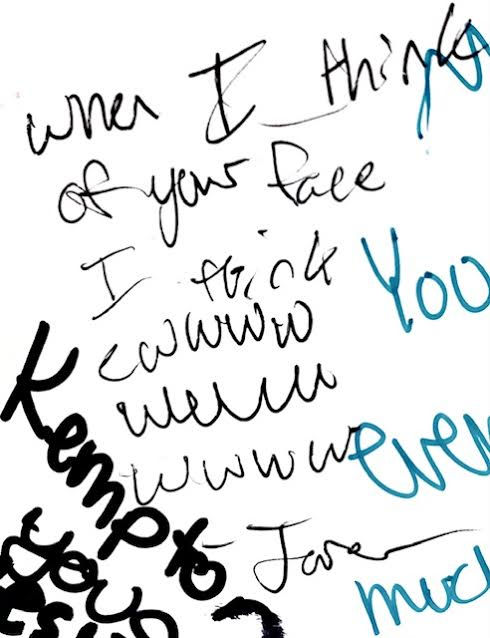 when I think
of your face
I think
ewwww
wwwww
wwwww
You
even
much
Kempto
your